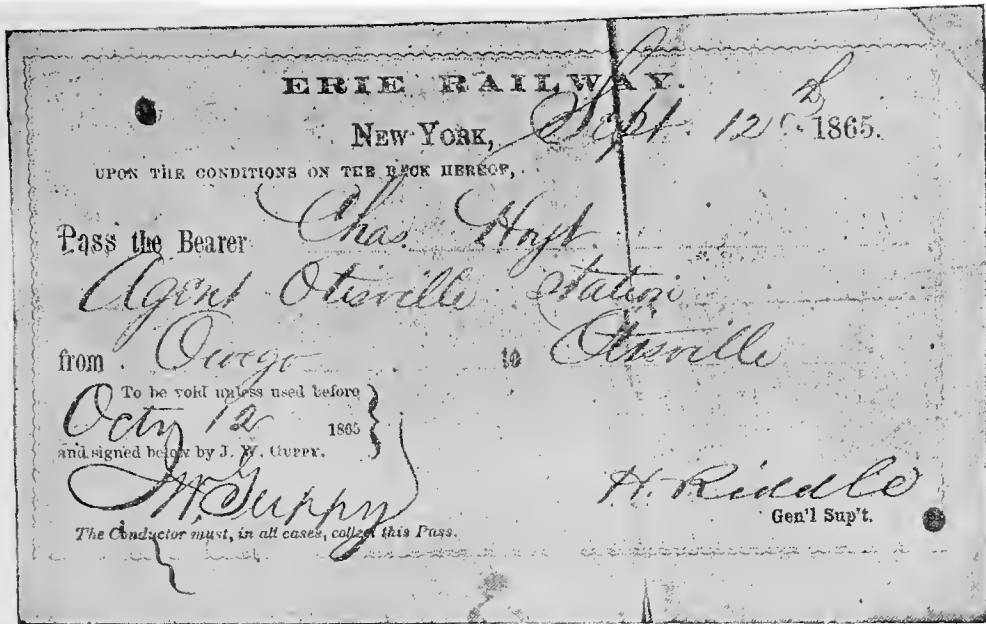 ERIE RAILWAY.
NEW YORK, Sept. 12th 1865.
UPON THE CONDITIONS ON THE BACK HEREOF,
Pass the Bearer Chas. Hoyt.
Agent Otisville Station
from Owego to Otisville
To be void unless used before
Octr 12 1865
and signed below by J. W. GUPPY.
J W. Guppy
H. Riddle
Gen'l Sup't.
The Conductor must, in all cases, collect this Pass.